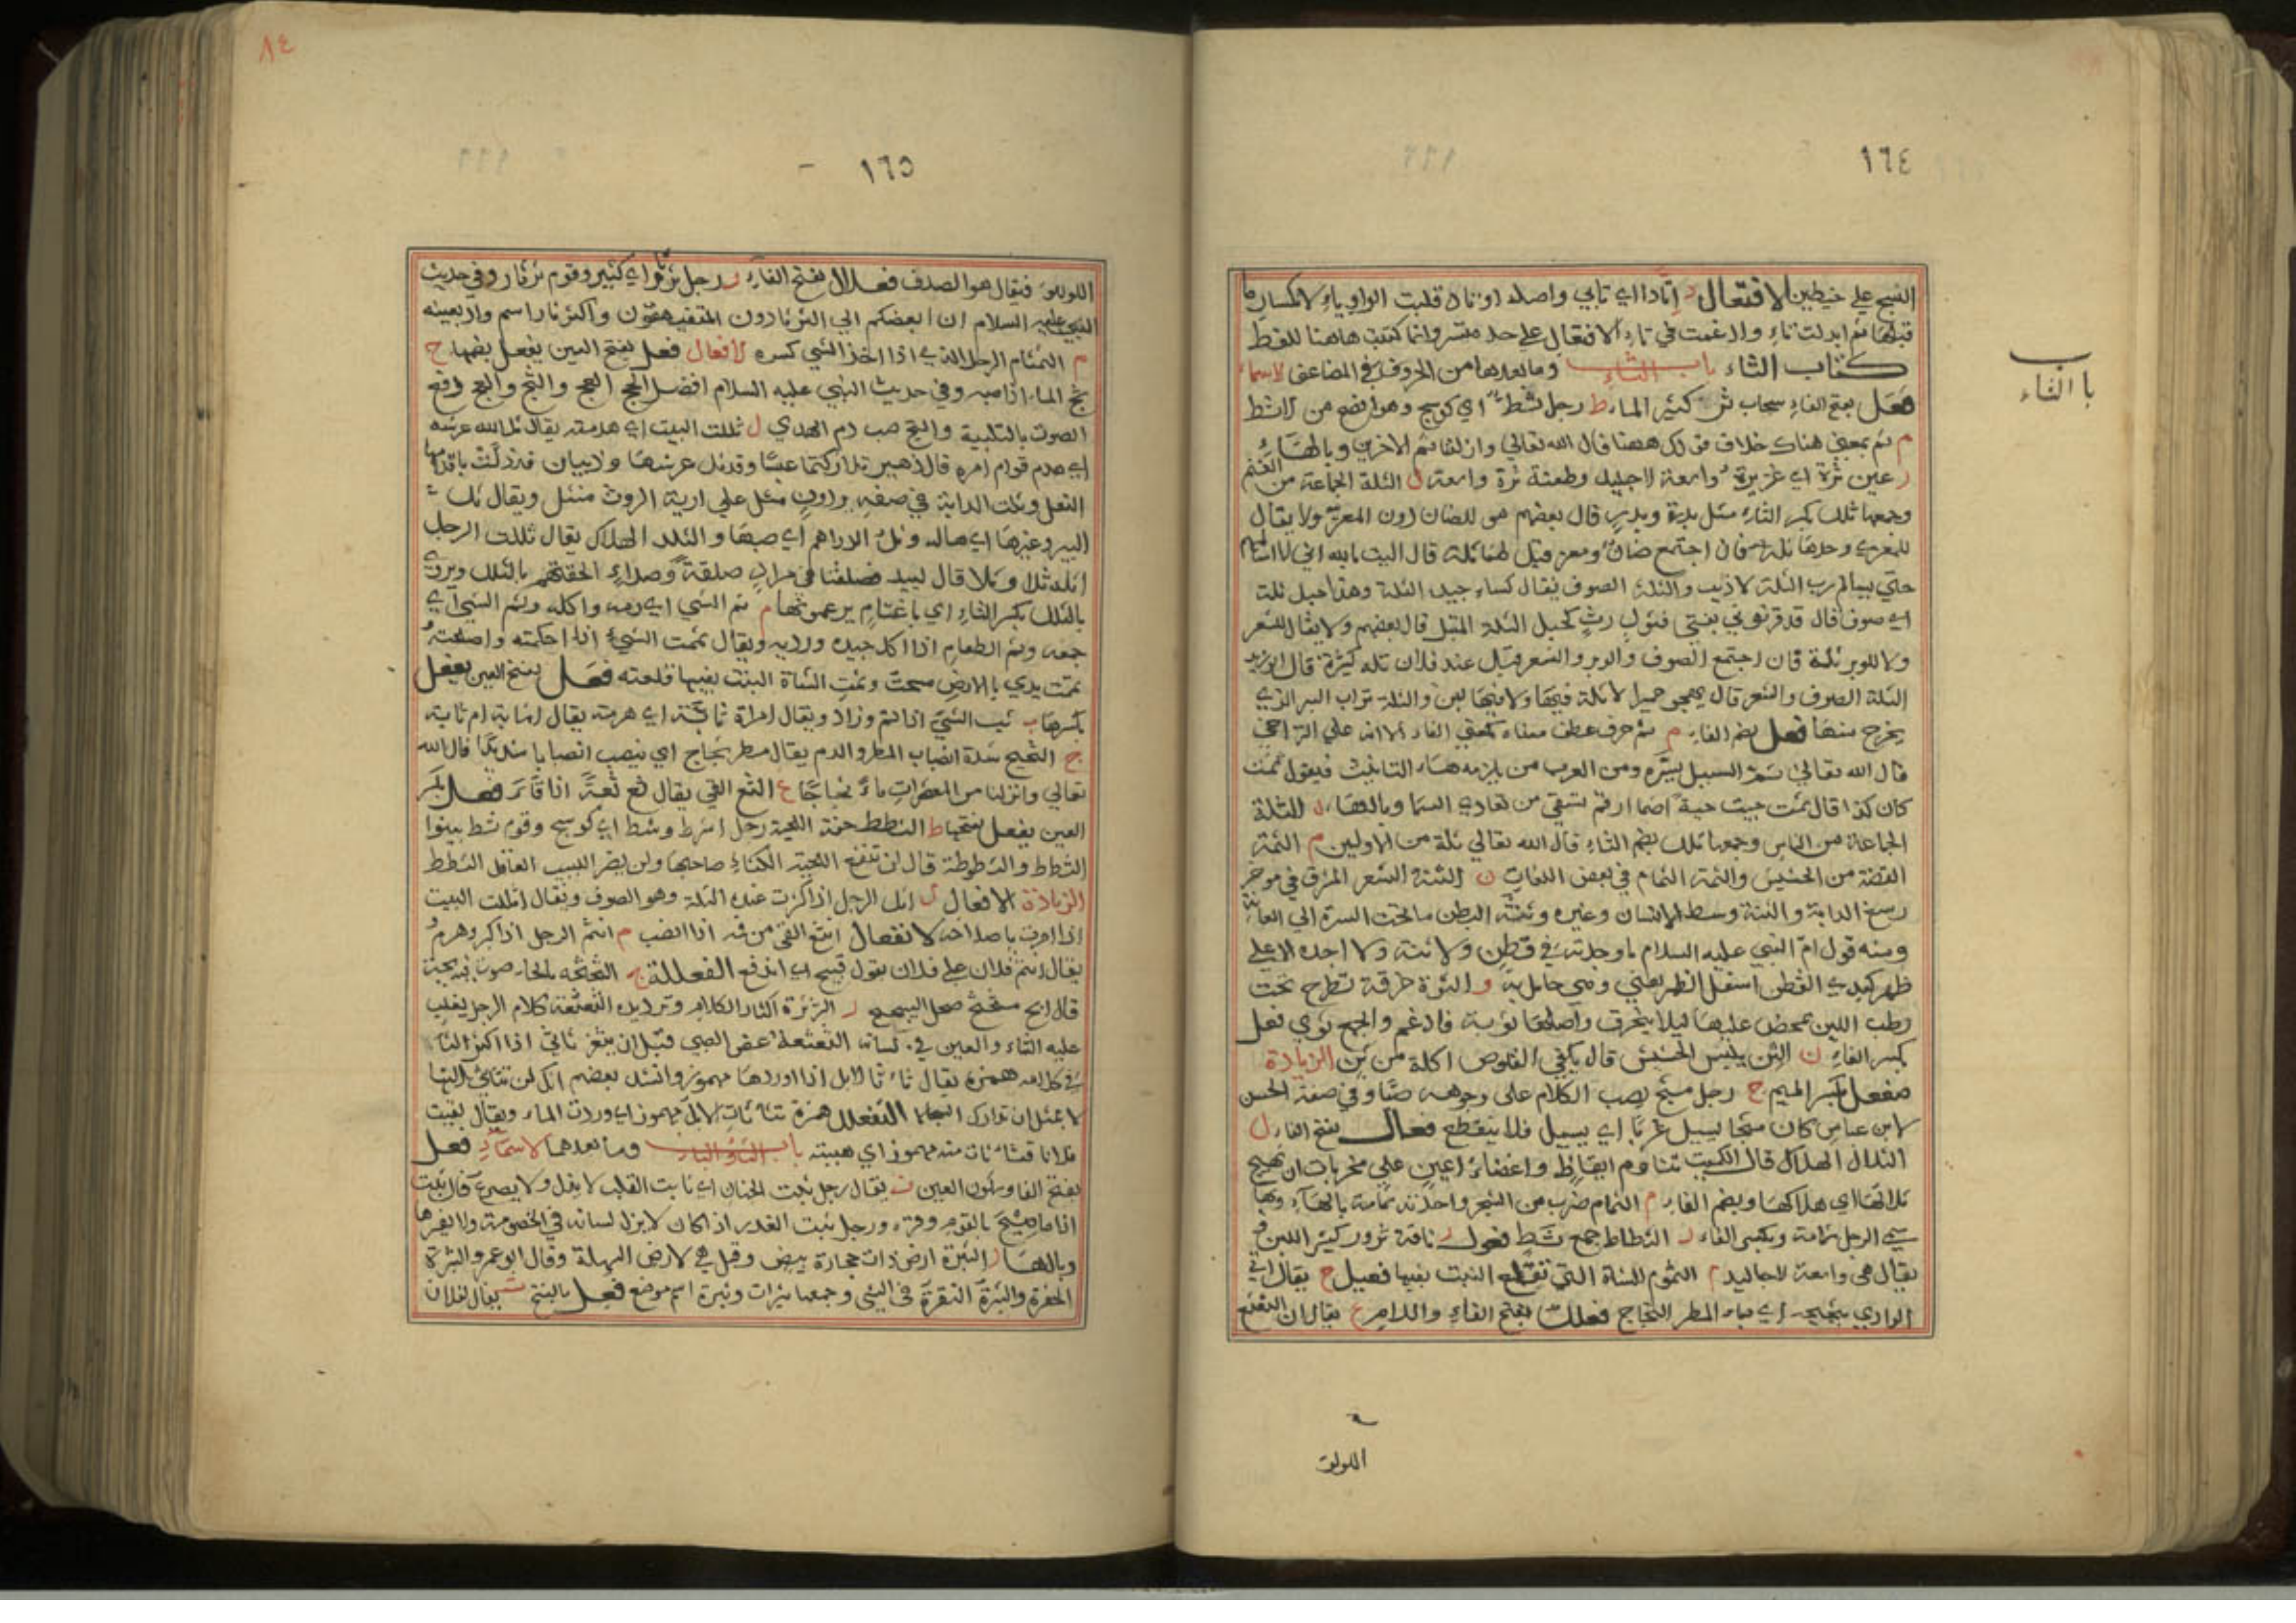 ١٦٤
باب الثاء
النسج على خيطين الافتعال د اتّادا اي تابي واصله اوتاد قلبت الواو ياء لانكسار ما
قبلها ثم ابدلت تاء وادغمت في تاء الافتعال على حد متسر وانما كتبت هاهنا للفظ
كتاب الثاء باب الثاء وما بعدها من الحروف في المضاعف الاسماء
فعل بفتح الفاء سحاب ثر كثير الماء ط رجل ثط اي كوسج وهو افصح من الاثط
م ثم بمعنى هناك خلاف قولك ههنا قال الله تعالى وازلفنا ثم الاخرين وبالهاء
ر عين ثرة اي غزيرة واسعة الاحليل وطعنة ثرة واسعة ل الثلة الجماعة من الغنم
وجمعها ثلل بكسر الثاء مثل بدرة وبدر قال بعضهم هي للضان دون المعزى ولا يقال
للمعزى وحدها ثلة فان اجتمع ضان ومعز قيل لهما ثلة قال
حتى يسالم رب الثلة الذيب والثلة الصوف يقال كساء جيد الثلة وهذا حبل ثلة
اي صوف قال قد قرنوني بفتى قثول رث كحبل الثلة المبتل قال بعضهم ولا يقال للشعر
ولا للوبر ثلة فان اجتمع الصوف والوبر والشعر قيل عند فلان ثلة كثيرة قال ابو زيد
الثلة الصوف والشعر قال يهجو حميرا لا ثلة فيها ولا فيها لبن والثلة تراب البير الذي
يخرج منها فعل بضم الفاء م ثم حرف عطف معناه كمعنى الفاء الا انه على التراخي
قال الله تعالى ثم السبيل يسره ومن العرب من يلزمه هاء التانيث فيقول ثمت
كان كذا قال ثمت جيت حية اصما ارقم يسقي من يعادي السما وبالهاء ل الثلة
الجماعة من الناس وجمعها ثلل بضم الثاء قال الله تعالى ثلة من الاولين م الثمة
القبضة من الحشيش والثمة الثمام في بعض اللغات ن الثنة الشعر المشرق في موخر
رسغ الدابة والثنة وسط الانسان وغيره وثنة البطن ما تحت السرة الى العانة
ومنه قول ام النبي عليه السلام ما وجدته في قطن ولا ثنة ولا اجده الا على
ظهر كبدي القطن اسفل الظهر يعني وهي حامل به و الثوة خرقة تطرح تحت
وطب اللبن يمخض عليها ليلا يتخرق واصلها ثوية فادغم والجمع ثوي فعل
بكسر الفاء ن الثن يبيس الحشيش قال يكفي القلوص اكلة من ثن الزيادة
مفعل بكسر الميم ج رجل مثج يصب الكلام على وجوهه صبا وفي صفة الحسن
لابن عباس كان مثجا يسيل غربا اي يسيل فلا ينقطع فعال بفتح الفاء ل
الثلال الهلاك قال الكميت تناوم ايقاظ واغضاء اعين على مخزيات ان تهيج
ثلالها اي هلاكها وبضم الفاء م الثمام ضرب من الشجر واحدته ثمامة بالهاء وبها
سمي الرجل ثمامة وبكسر الفاء الثطاط جمع ثط فعول ر ناقة ثرور كثير اللبن
يقال هي واسعة الاحاليل م الثموم الشاة التي تقطع النبت بفيها فعيل ج يقال اتى
الوادي بثجيجه اي مياه المطر الثجاج فعلل بفتح الفاء واللام ع يقال ان الثعثع
اللولؤ
٨٤
١٦٥
اللولؤ فيقال هو الصدف فعلال بفتح الفاء ر رجل ثرثار اي كثير وقوم ثرثار وفي حديث
النبي عليه السلام ان ابغضكم الي الثرثارون المتفيهقون واكثرثار اسم واد بعينه
م الثمثام الرجل الذي اذا اخذ الشي كسره الافعال فعل بفتح العين يفعل بضمها ج
ثج الماء اذا صبه وفي حديث النبي عليه السلام افضل الحج العج والثج والعج رفع
الصوت بالتلبية والثج صب دم الهدي ل ثللت البيت اي هدمته يقال ثل الله عرشه
اي هدم قوام امره قال زهير تداركتما عبسا وقد ثل عرشها وذبيان قد زلت باقدامها
النعل وثلت الدابة في صفة برذون مثل على اريه الروث منثل ويقال ثل
البير وغيرها اي هاله وثل الدراهم اي صبها والثلل الهلاك يقال ثللت الرجل
اثله ثلا وثللا قال لبيد فصلقنا في مراد صلقة وصداء الحقتهم بالثلل ويروى
بالثلل بكسر الثاء اي باغنام يرعونها م ثم الشي اي رمه واكله وثم الشي اي
جمعه وثم الطعام اذا اكل جيده ورديه ويقال ثممت الشيء اذا احكمته واصلحته
ثممت يدي بالارض مسحت وثمت الشاة النبت بفيها قلعته فعل بفتح العين يفعل
بكسرها ب ثب الشي اذا تم وزاد ويقال امراة ثابة اي هرمة يقال اشابة ام ثابة
ج الثجيج شدة انصباب المطر والدم يقال مطر ثجاج اي ينصب انصبابا شديدا قال الله
تعالى وانزلنا من المعصرات ماء ثجاجا ع الثع القي يقال ثع ثعة اذا قاء فعل بكسر
العين يفعل بفتحها ط الثطط خفة اللحية رجل اثط وثط اي كوسج وقوم ثط بينوا
الثطاط والثطوطة قال لن تنفع اللحية الكثاء صاحبها ولن يضر اللبيب العاقل الثطط
الزيادة الافعال ل اثل الرجل اذا كثرت عنده الثلة وهو الصوف ويقال اثللت البيت
اذا امرت باصلاحه الانفعال انثع القي من فيه اذا انصب م انثم الرجل اذا كبر وهرم
يقال انثم فلان على فلان بقول قبيح اي اندفع الفعللة ج الثحثحة بالحاء صوت فيه بحة
قال ابح مثحثح صحل السحيح ر الثرثرة اكثار الكلام وترديده الثعثعة كلام الرجل يغلب
عليه الثاء والعين في لسانه الثغثغة عض الصبي قبل ان يثغر ثاثي اذا اكثر الثاء
في كلامه همزة يقال ثاثا الابل اذا اوردها مهموز وانشد بعضهم انك لن تثاثي النها
لا بمثل ان تدارك السجالا التفعلل همزة تثاثات الابل مهموز اي وردت الماء ويقال لقيت
فلانا فتثاثات منه مهموز اي هبته باب الثاء والباء وما بعدهما الاسماء فعل
بفتح الفا وسكون العين ت يقال رجل ثبت الجنان اي ثابت القلب لا يفل ولا يصرع قال ثبت
اذا ما صيح بالقوم وقر ورجل ثبت الغدر اذا كان لا يزل لسانه في الخصومة ولا لغيرها
وبالهاء ر الثبرة ارض ذات حجارة بيض وقيل هي الارض السهلة وقال ابو عمر والثبرة
الحفرة والثبرة النقرة في الشي وجمعها ثبرات وثبرة اسم موضع فعل بالفتح ت يقال لفلان